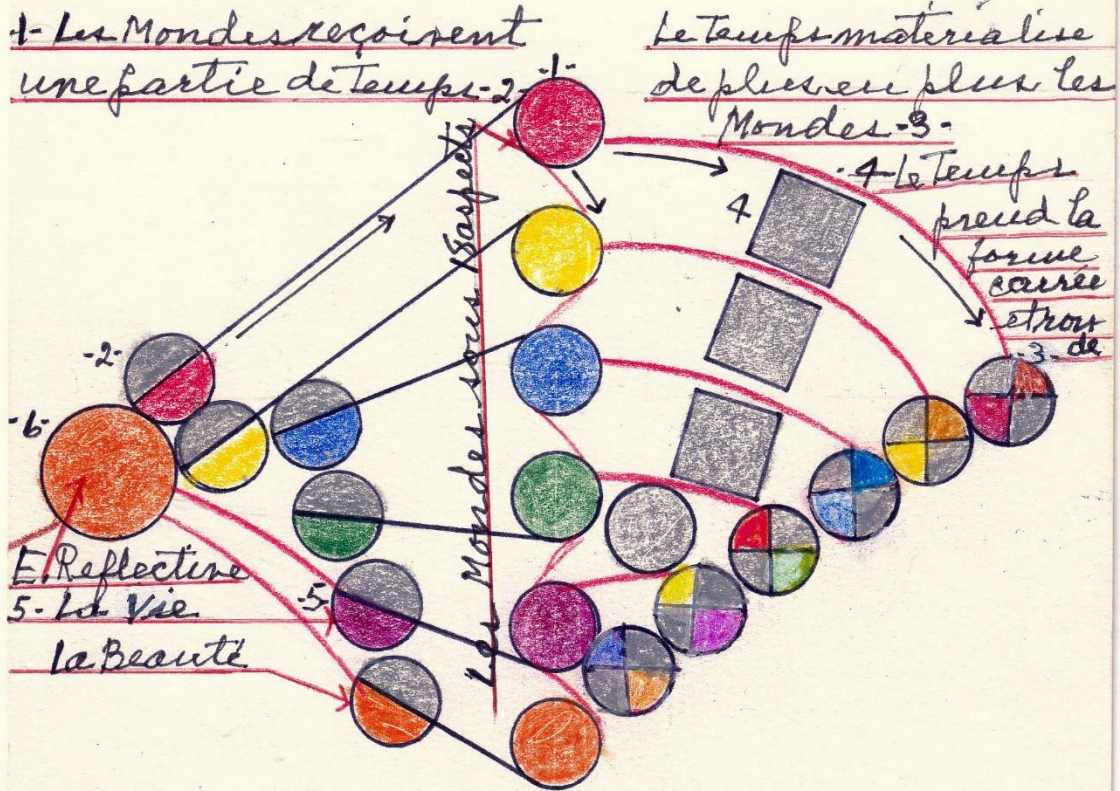 1- Les Mondes reçoivent
une partie de Temps -2-
-1-
Le Temps materialise
de plus en plus les
Mondes -3-
-4- Le Temps
prend la
forme
carrée
et ron
de
-3-
4
Les Mondes sous aspects
-2-
-6-
E. Reflective
5- La Vie
-5-
la Beauté